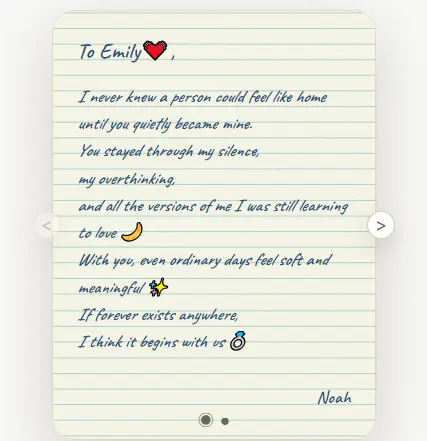 To Emily❤️ ,
I never knew a person could feel like home
until you quietly became mine.
You stayed through my silence,
my overthinking,
and all the versions of me I was still learning
to love 🌙
With you, even ordinary days feel soft and
meaningful ✨
If forever exists anywhere,
I think it begins with us 💍
Noah